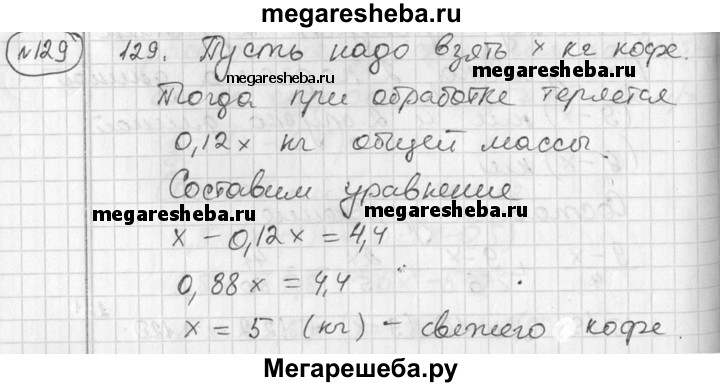 megaresheba.ru
№129 129. Пусть надо взять x кг кофе.
megaresheba.ru megaresheba.ru
Тогда при обработке теряется
0,12x кг общей массы.
Составим уравнение
megaresheba.ru megaresheba.ru
x - 0,12x = 4,4
0,88x = 4,4
x = 5 (кг) - свежего кофе.
Мегарешеба.ру